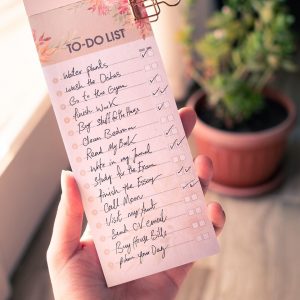 TO-DO LIST
Water plants
Wash the Dishes
Go to the Gym
finish Work
Buy stuff for the House
Clean Bedroom
Read My Book
Write in my Journal
Study for the Exam
finish the Essay
Call Mom
Visit my Aunt
Send CV email
Buy House Bills
plan your Day